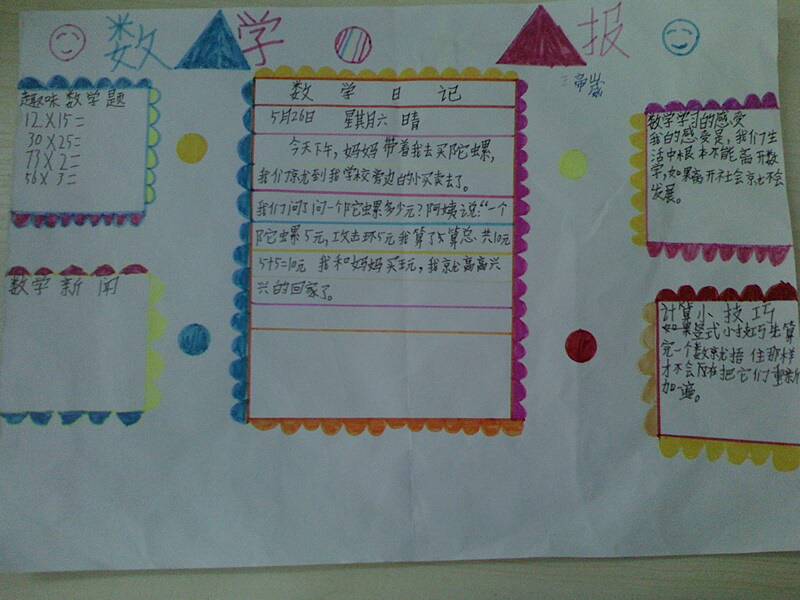 数学报
趣味数学题
12×15=
30×25=
73×2=
56×3=
数学新闻
数学日记
5月26日 星期六 晴
今天下午,妈妈带着我去买陀螺,
我们京尤到我学校旁边的小买卖去了。
我们问了问一个陀螺多少元?阿姨说:“一个
陀螺5元,攻击环5元我算了算总共10元
5+5=10元 我和妈妈买玩,我京尤高高兴
兴的回家了。
数学学习的感受
我的感受是,我们生
活中根本不能离开数
学,如果离开社会京尤不会
发展。
计算小技巧
如果竖式小技巧生算
完一个数京尤捂住那样
才不会 把它们重新
加一遍。